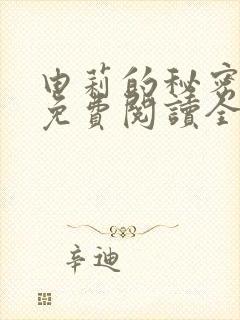 申莉的秘密
免費閱讀全
辛迪